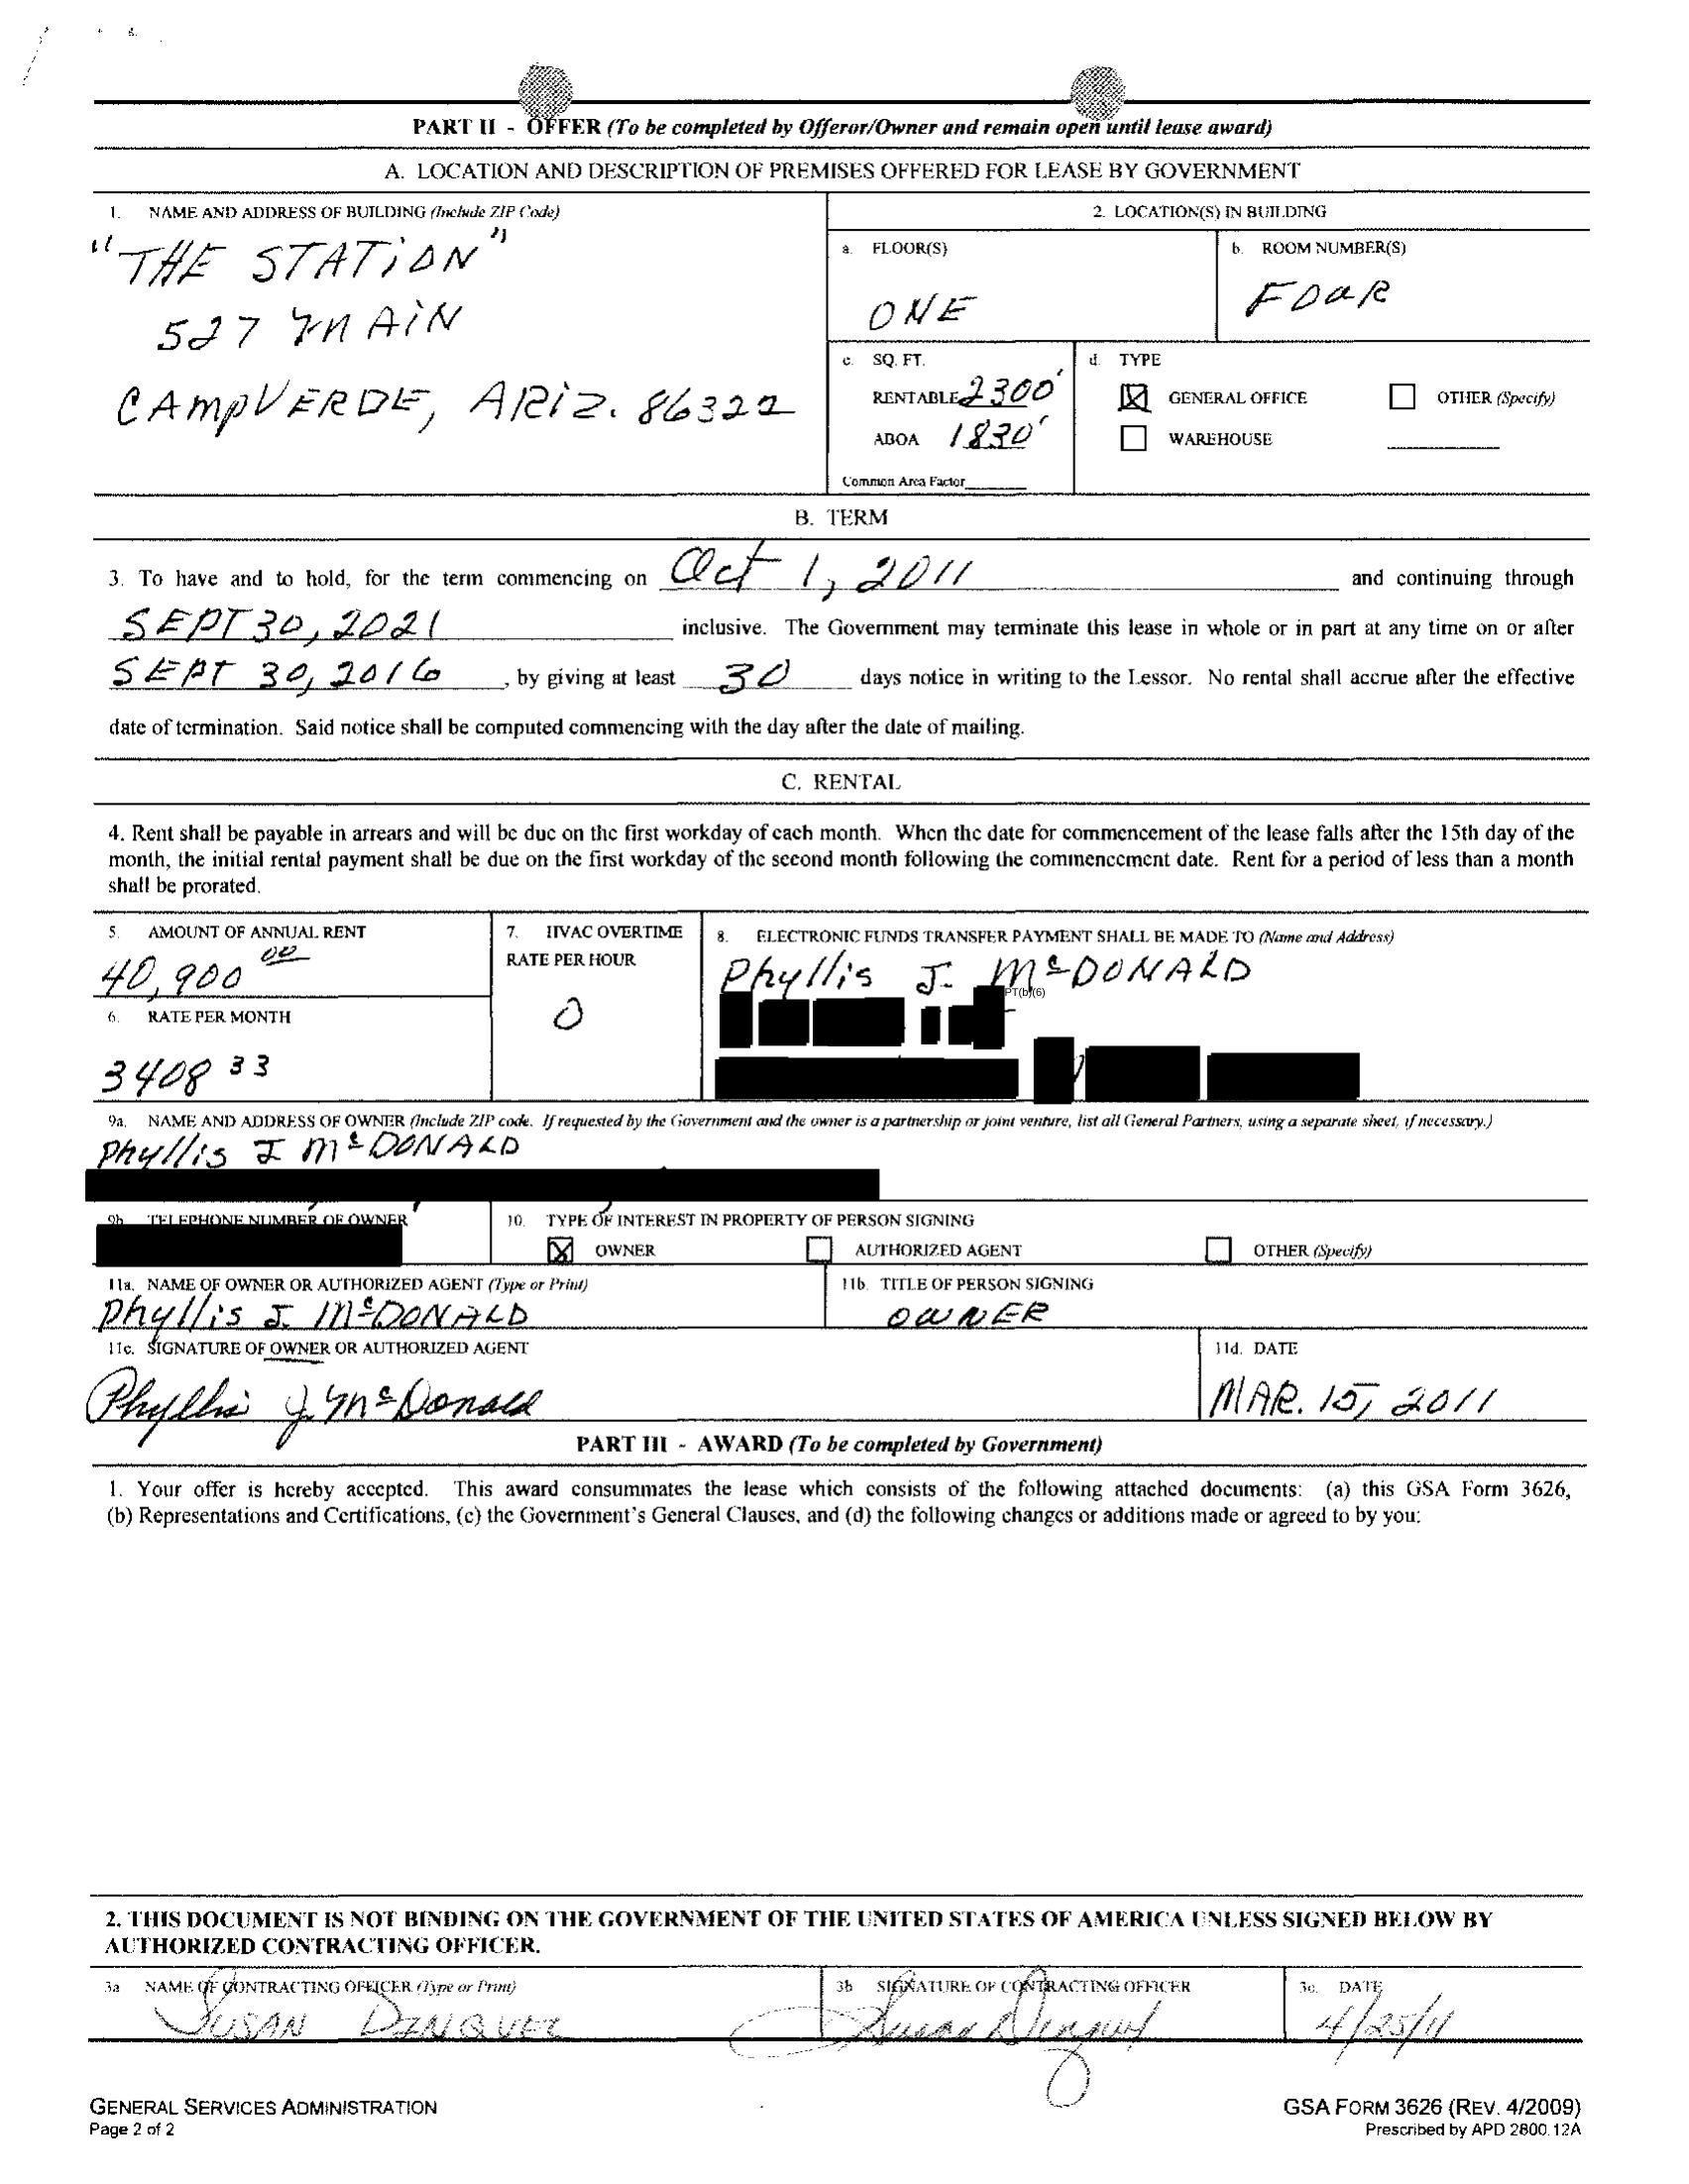 PART II - OFFER (To be completed by Offeror/Owner and remain open until lease award)
A. LOCATION AND DESCRIPTION OF PREMISES OFFERED FOR LEASE BY GOVERNMENT
1. NAME AND ADDRESS OF BUILDING (Include ZIP Code)
"THE STATION"
527 MAIN
CAMP VERDE, ARIZ. 86322
2. LOCATION(S) IN BUILDING
a. FLOOR(S)
ONE
b. ROOM NUMBER(S)
FOUR
c. SQ. FT.
RENTABLE 2300'
ABOA 1830'
Common Area Factor
d. TYPE
GENERAL OFFICE
OTHER (Specify)
WAREHOUSE
B. TERM
3. To have and to hold, for the term commencing on Oct 1, 2011 and continuing through
SEPT 30, 2021 inclusive. The Government may terminate this lease in whole or in part at any time on or after
SEPT 30, 2016, by giving at least 30 days notice in writing to the Lessor. No rental shall accrue after the effective
date of termination. Said notice shall be computed commencing with the day after the date of mailing.
C. RENTAL
4. Rent shall be payable in arrears and will be due on the first workday of each month. When the date for commencement of the lease falls after the 15th day of the
month, the initial rental payment shall be due on the first workday of the second month following the commencement date. Rent for a period of less than a month
shall be prorated.
5. AMOUNT OF ANNUAL RENT
40,900 00
6. RATE PER MONTH
3408 33
7. HVAC OVERTIME
RATE PER HOUR
0
8. ELECTRONIC FUNDS TRANSFER PAYMENT SHALL BE MADE TO (Name and Address)
Phyllis J. McDONALD
PT(b)(6)
9a. NAME AND ADDRESS OF OWNER (Include ZIP code. If requested by the Government and the owner is a partnership or joint venture, list all General Partners, using a separate sheet, if necessary.)
Phyllis J McDONALD
9b. TELEPHONE NUMBER OF OWNER
10. TYPE OF INTEREST IN PROPERTY OF PERSON SIGNING
OWNER
AUTHORIZED AGENT
OTHER (Specify)
11a. NAME OF OWNER OR AUTHORIZED AGENT (Type or Print)
Phyllis J. McDONALD
11b. TITLE OF PERSON SIGNING
OWNER
11c. SIGNATURE OF OWNER OR AUTHORIZED AGENT
Phyllis J. McDonald
11d. DATE
MAR. 15, 2011
PART III - AWARD (To be completed by Government)
1. Your offer is hereby accepted. This award consummates the lease which consists of the following attached documents: (a) this GSA Form 3626,
(b) Representations and Certifications, (c) the Government's General Clauses, and (d) the following changes or additions made or agreed to by you:
2. THIS DOCUMENT IS NOT BINDING ON THE GOVERNMENT OF THE UNITED STATES OF AMERICA UNLESS SIGNED BELOW BY
AUTHORIZED CONTRACTING OFFICER.
3a NAME OF CONTRACTING OFFICER (Type or Print)
SUSAN
3b SIGNATURE OF CONTRACTING OFFICER
Susan
3c. DATE
4/25/11
GENERAL SERVICES ADMINISTRATION
Page 2 of 2
GSA FORM 3626 (REV. 4/2009)
Prescribed by APD 2800.12A